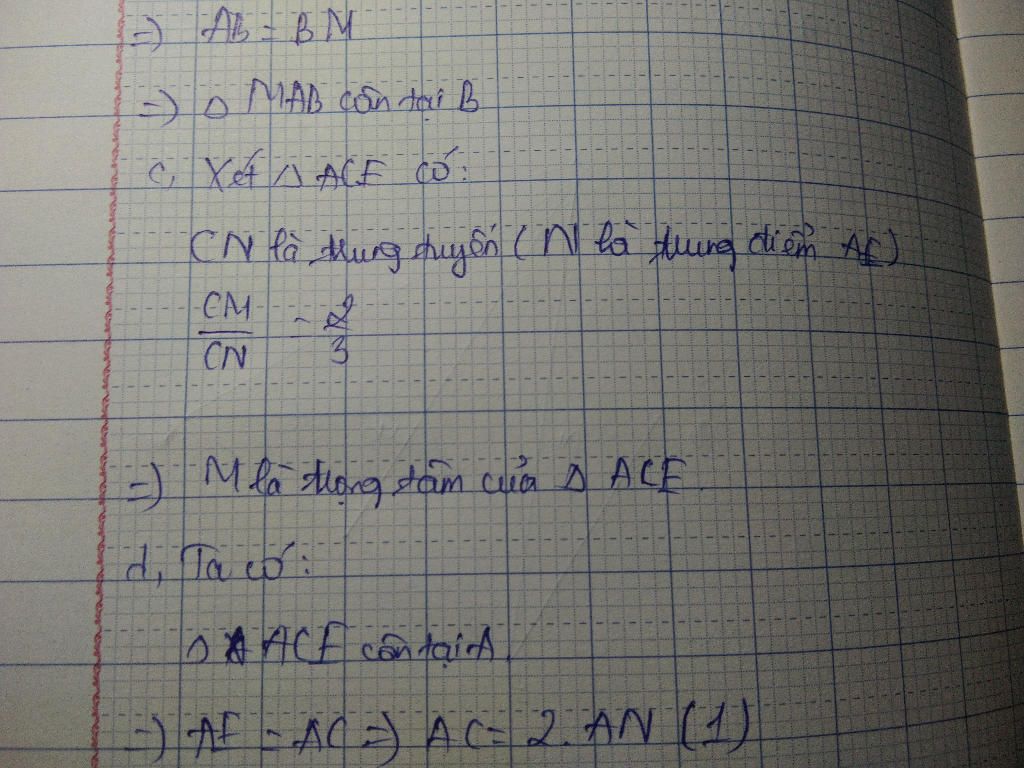 =) AB = BM
=) Δ MAB cân tại B
c, Xét Δ ACE có:
CN là trung tuyến ( N là trung điểm AE )
CM
CN
= 2
3
=) M là trọng tâm của Δ ACE.
d, Ta có:
Δ ACE cân tại A.
=) AE = AC =) AC = 2. AN (1)